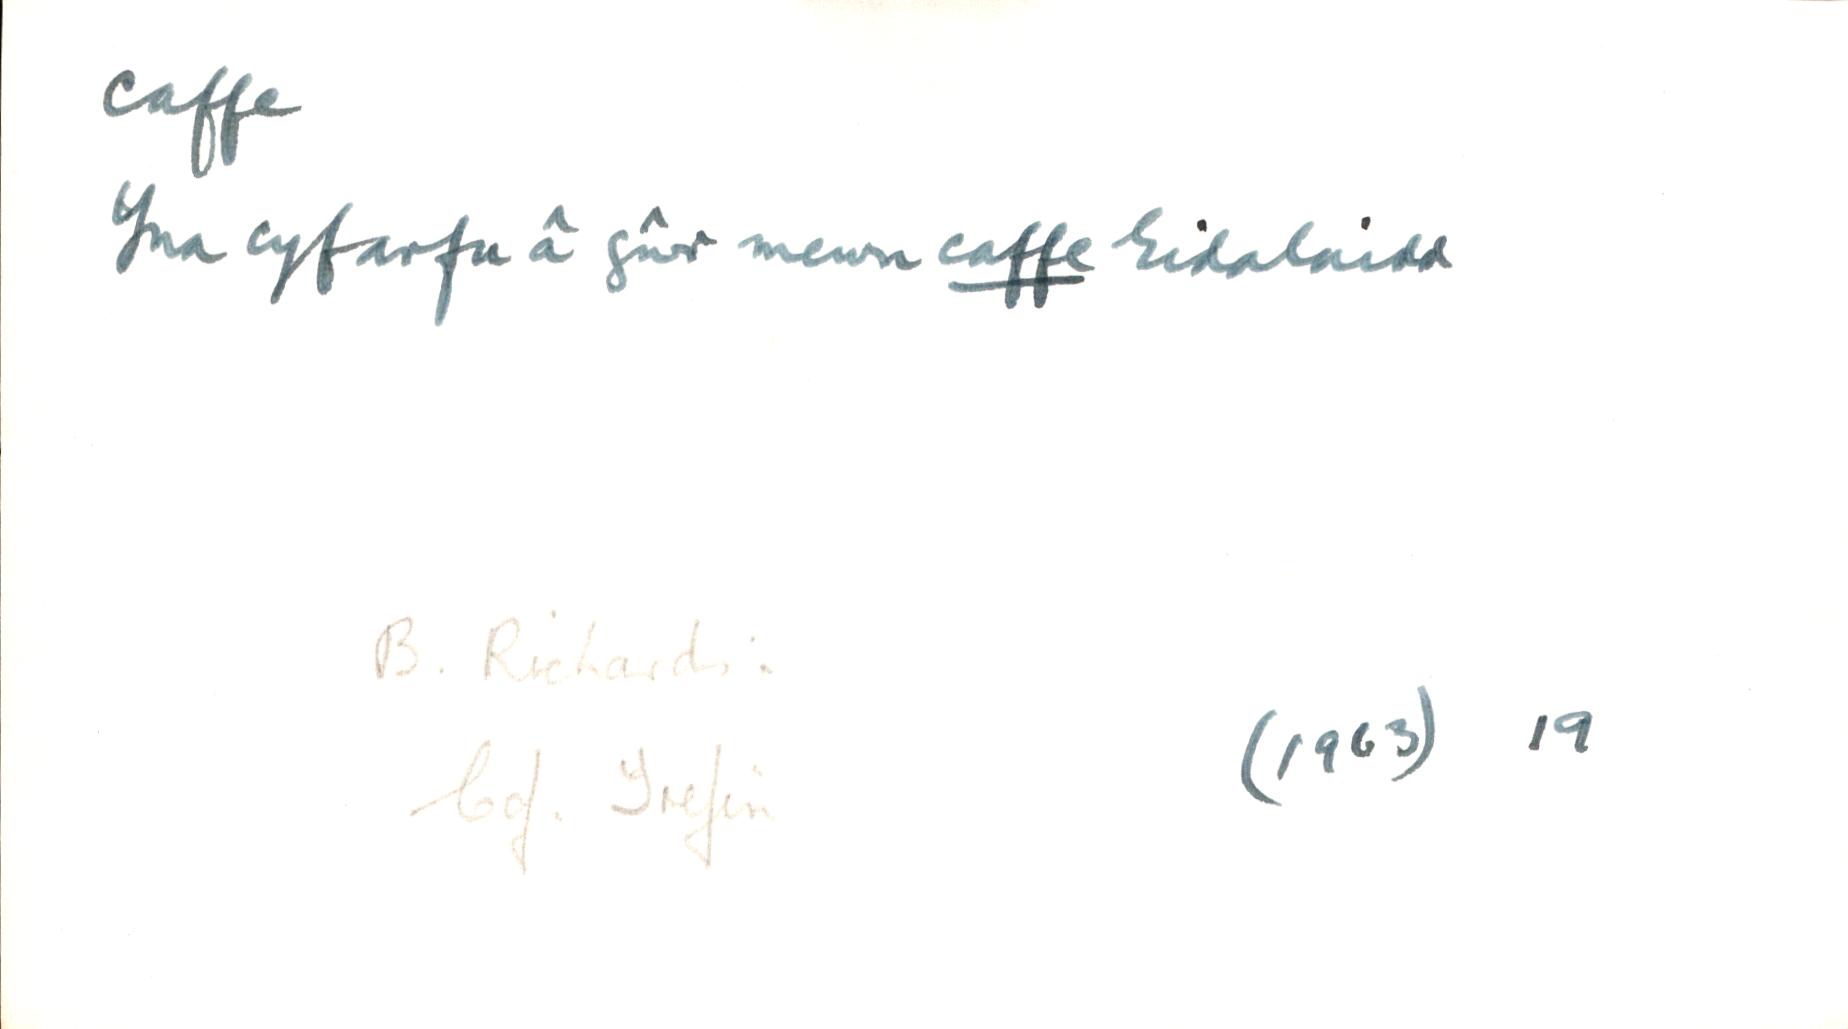 caffe
Yna cyfarfu â gŵr mewn caffe Eidalaidd
B. Richards:
Cof. Trefin
(1963) 19